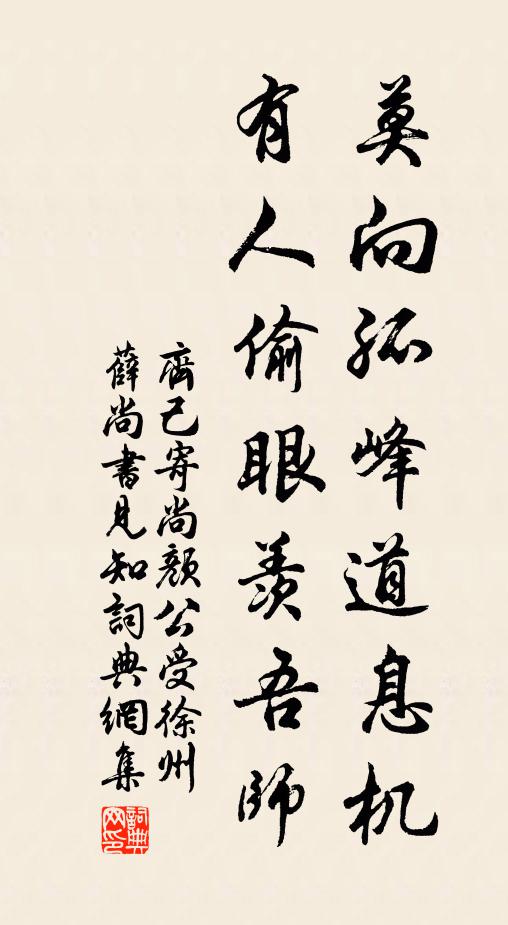 莫向孤峰道息机
有人偷眼羡吾師
齊己寄尚顏公受徐州
薛尚書見知詞典網集
詞典网印